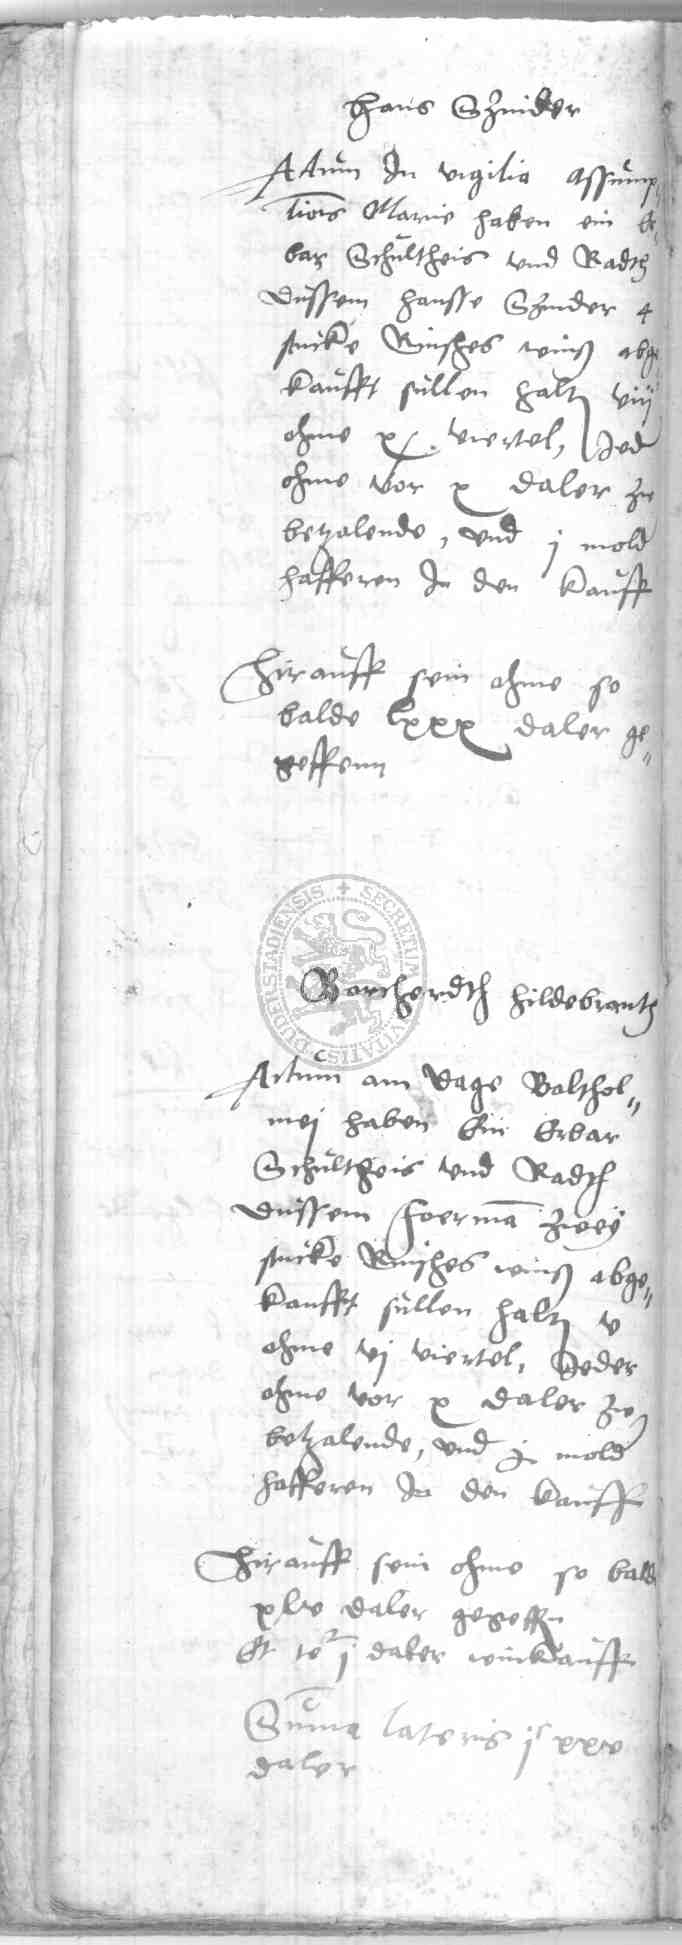 Hans Sznider
Actum In vigilia assump„
tionis Marie haben ein er„
bar Schultheis vnd Radth
dussem Hansse Sznider 4
stucke Rinsches weins abge„
kaufft sullen halt viij
ohme x viertel, Jed
ohme vor x daler zu
betzalende, vnd j mold
hafferen In den kauff
Hirauff sein ohme so
balde lxxx daler ge„
geffenn
SECRETUM CIVITATIS DUDERSTADIENSIS
Borcherdth Hildebrantz
Actum am dage Balthol„
mej haben Ein Erbar
Schultheis vnd Radth
dussem Foerman zwey
stucke Rinsches weins abge„
kaufft sullen halt v
ohme vj viertel, Jeder
ohme vor x daler zu
betzalende, vnd j mold
hafferen In den kauff
Hirauff sein ohme so bald
xlv daler gegeffn
Et j daler winkauff
Summa lateris jc xxv
daler